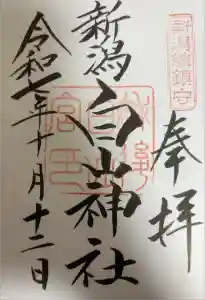 奉拝
新潟總鎮守
新潟
白山神社
令和七年十月十二日